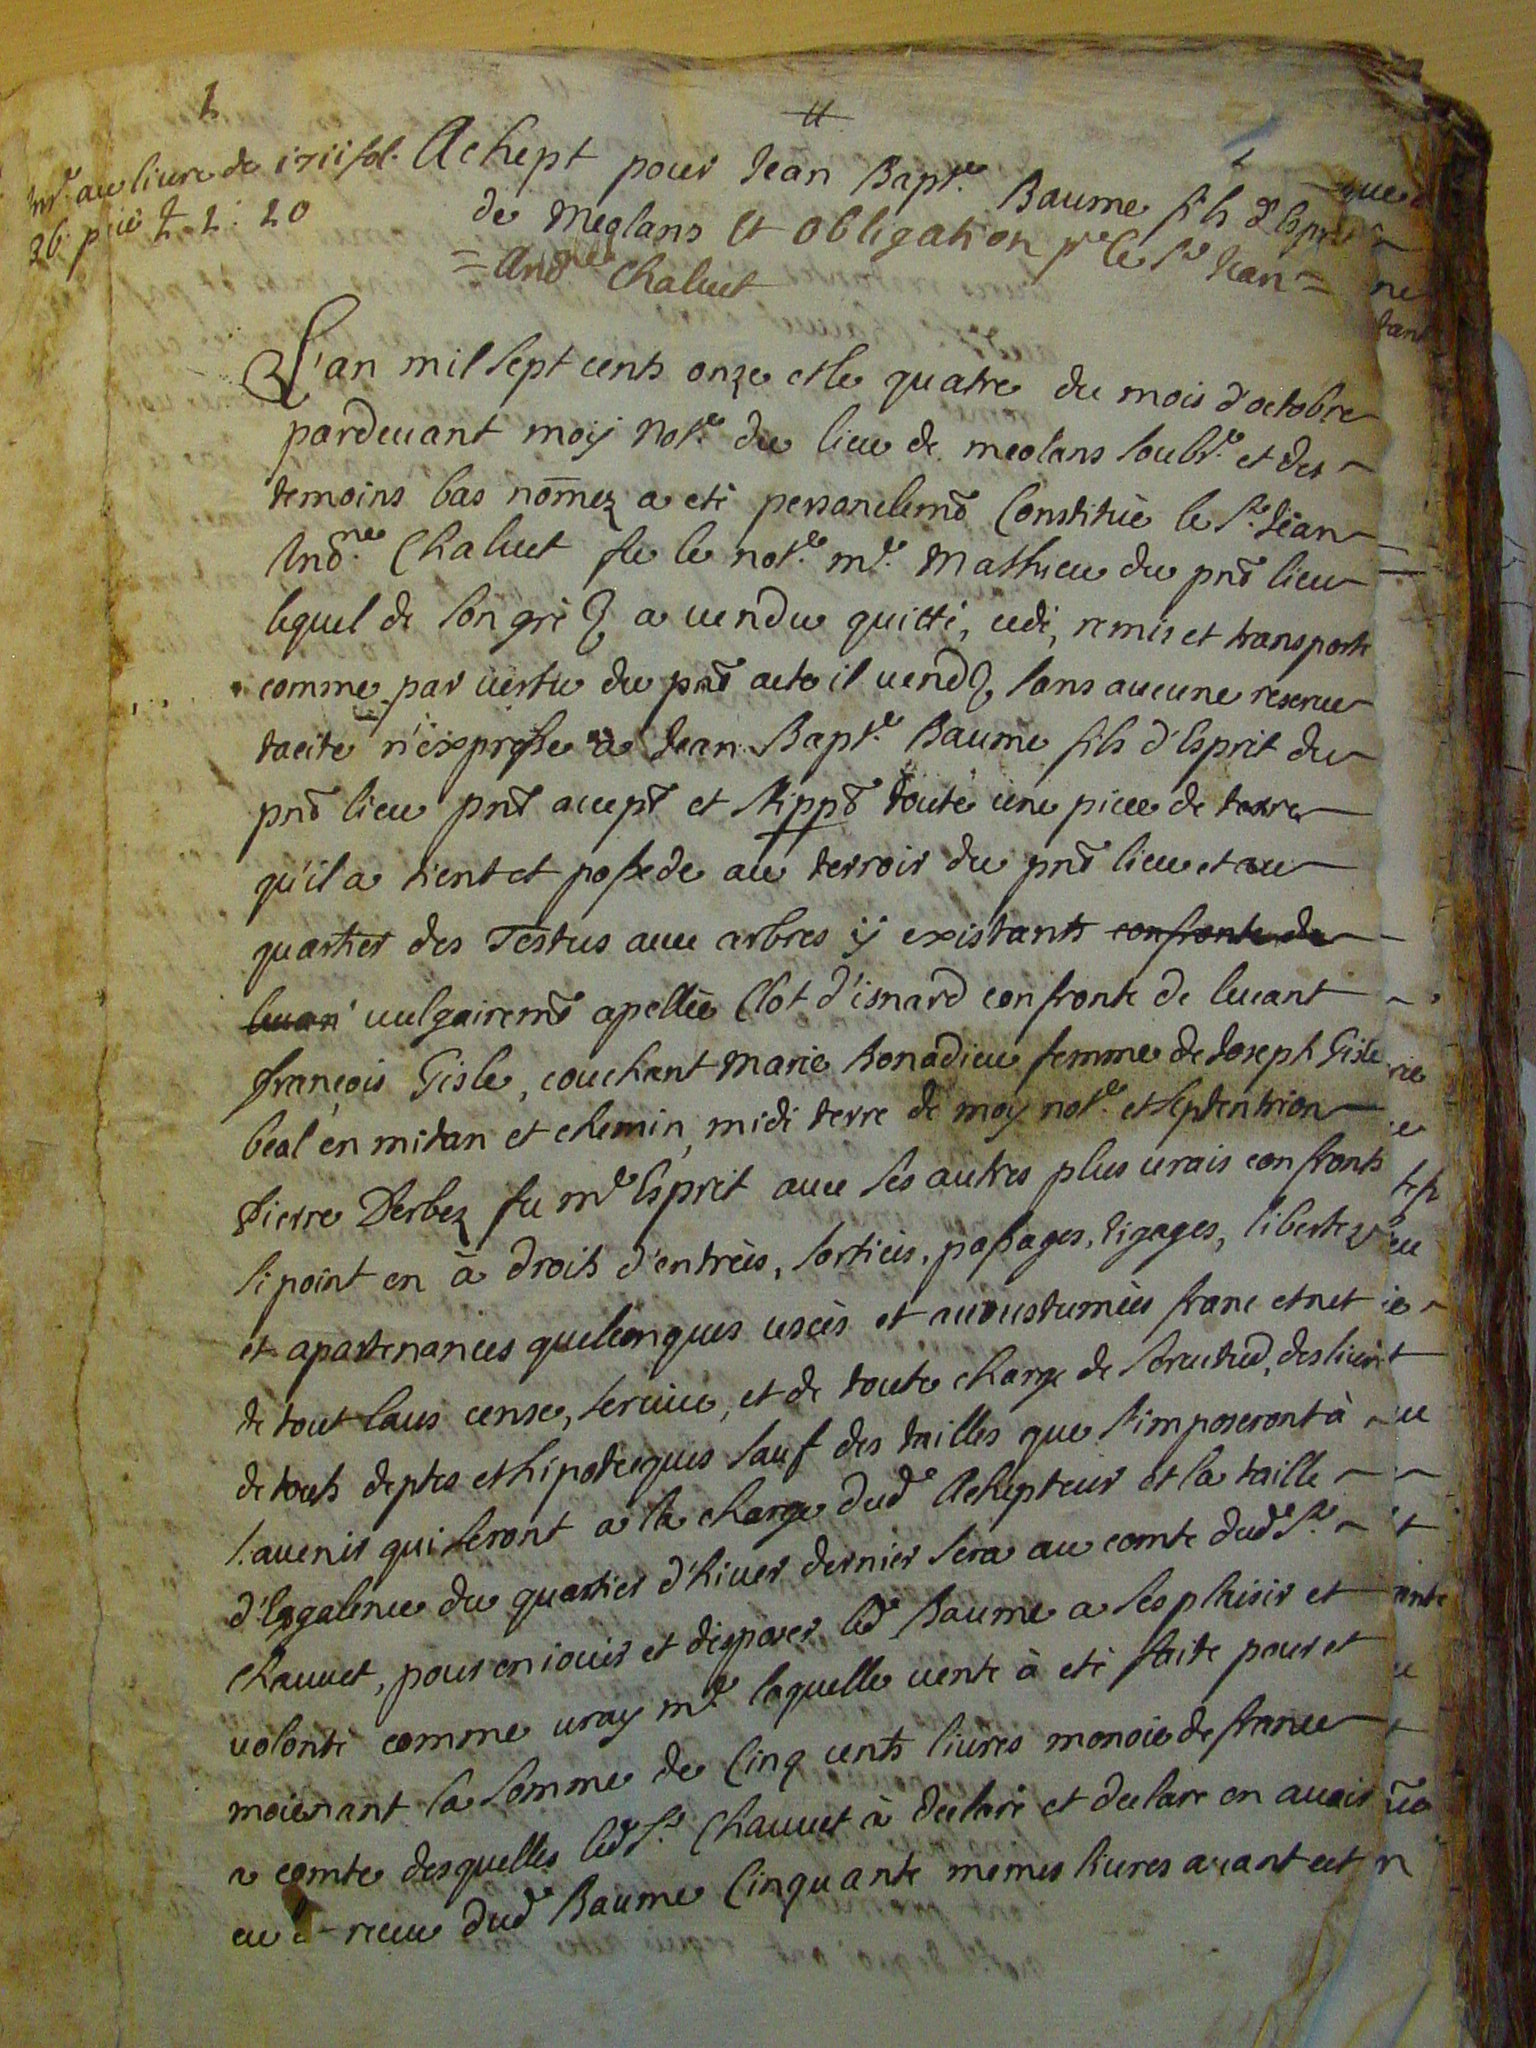 1
Inr.é au livre de 1711 fol.
36. p.ié 2. 2: 20
Achept pour Jean Bap.te Baume fils d'Esprit
de Meolans Et Obligation p.r le S.r Jean =
= And.né Chaluet
L'an mil sept cents onze et le quatre du mois d'octobre
pardeuant moy Not.e du lieu de meolans soubs.é et des
temoins bas nom̄ez a eté personelem̄t Constituè le S.r Jean
And.ne Chaluet fu le not.e m.e Mathieu du pnt lieu
lequel de son gré & a uendu quitté, cedé, remis et transporté
comme par uertu du pnt acte il uend & sans aucune reserue
tacite n'éxpresse à Jean Bap.te Baume fils d'Esprit du
pnt lieu pnt accept et stippt toute une piece de terre
qu'il a tient et possede au terroir du pnt lieu et au
quartier des Testus auec arbres ÿ existants confronte de
leuan' uulgairemt apellée Clot d'isnard confronte de leuant
françois Gisle, couchant Marie Bonadieu femme de Joseph Gisle
beal en mitan et chemin, midi terre de moy not.e et septentrion
Pierre Derbez fu m.e Esprit auec ses autres plus urais confronts
si point en à droits d'entrées, sorties, passages, ligages, libertez
et apartenances quelconques usées et accoustumées franc et net
de tout laus cense, seruice, et de toute charge de seruitud, desliurè
de touts deptes et hipoteques sauf des tailles que s'imposeront à
l'auenir qui seront a la charge dud.t Achepteur et la taille
d'Esgalence du quartier d'hiuer dernier sera au comte dud.t S.r
Chauuet, pour en iouir et disposer led.t Baume a ses plaisir et
uolonté comme uray m.e laquelle uente à eté faite pour et
moienant la somme de Cinq cents liures monoie de france
a comte desquelles led.t S.r Chauuet à declaré et declare en auoir
eu et receu dud.t Baume Cinquante memes liures auant cet